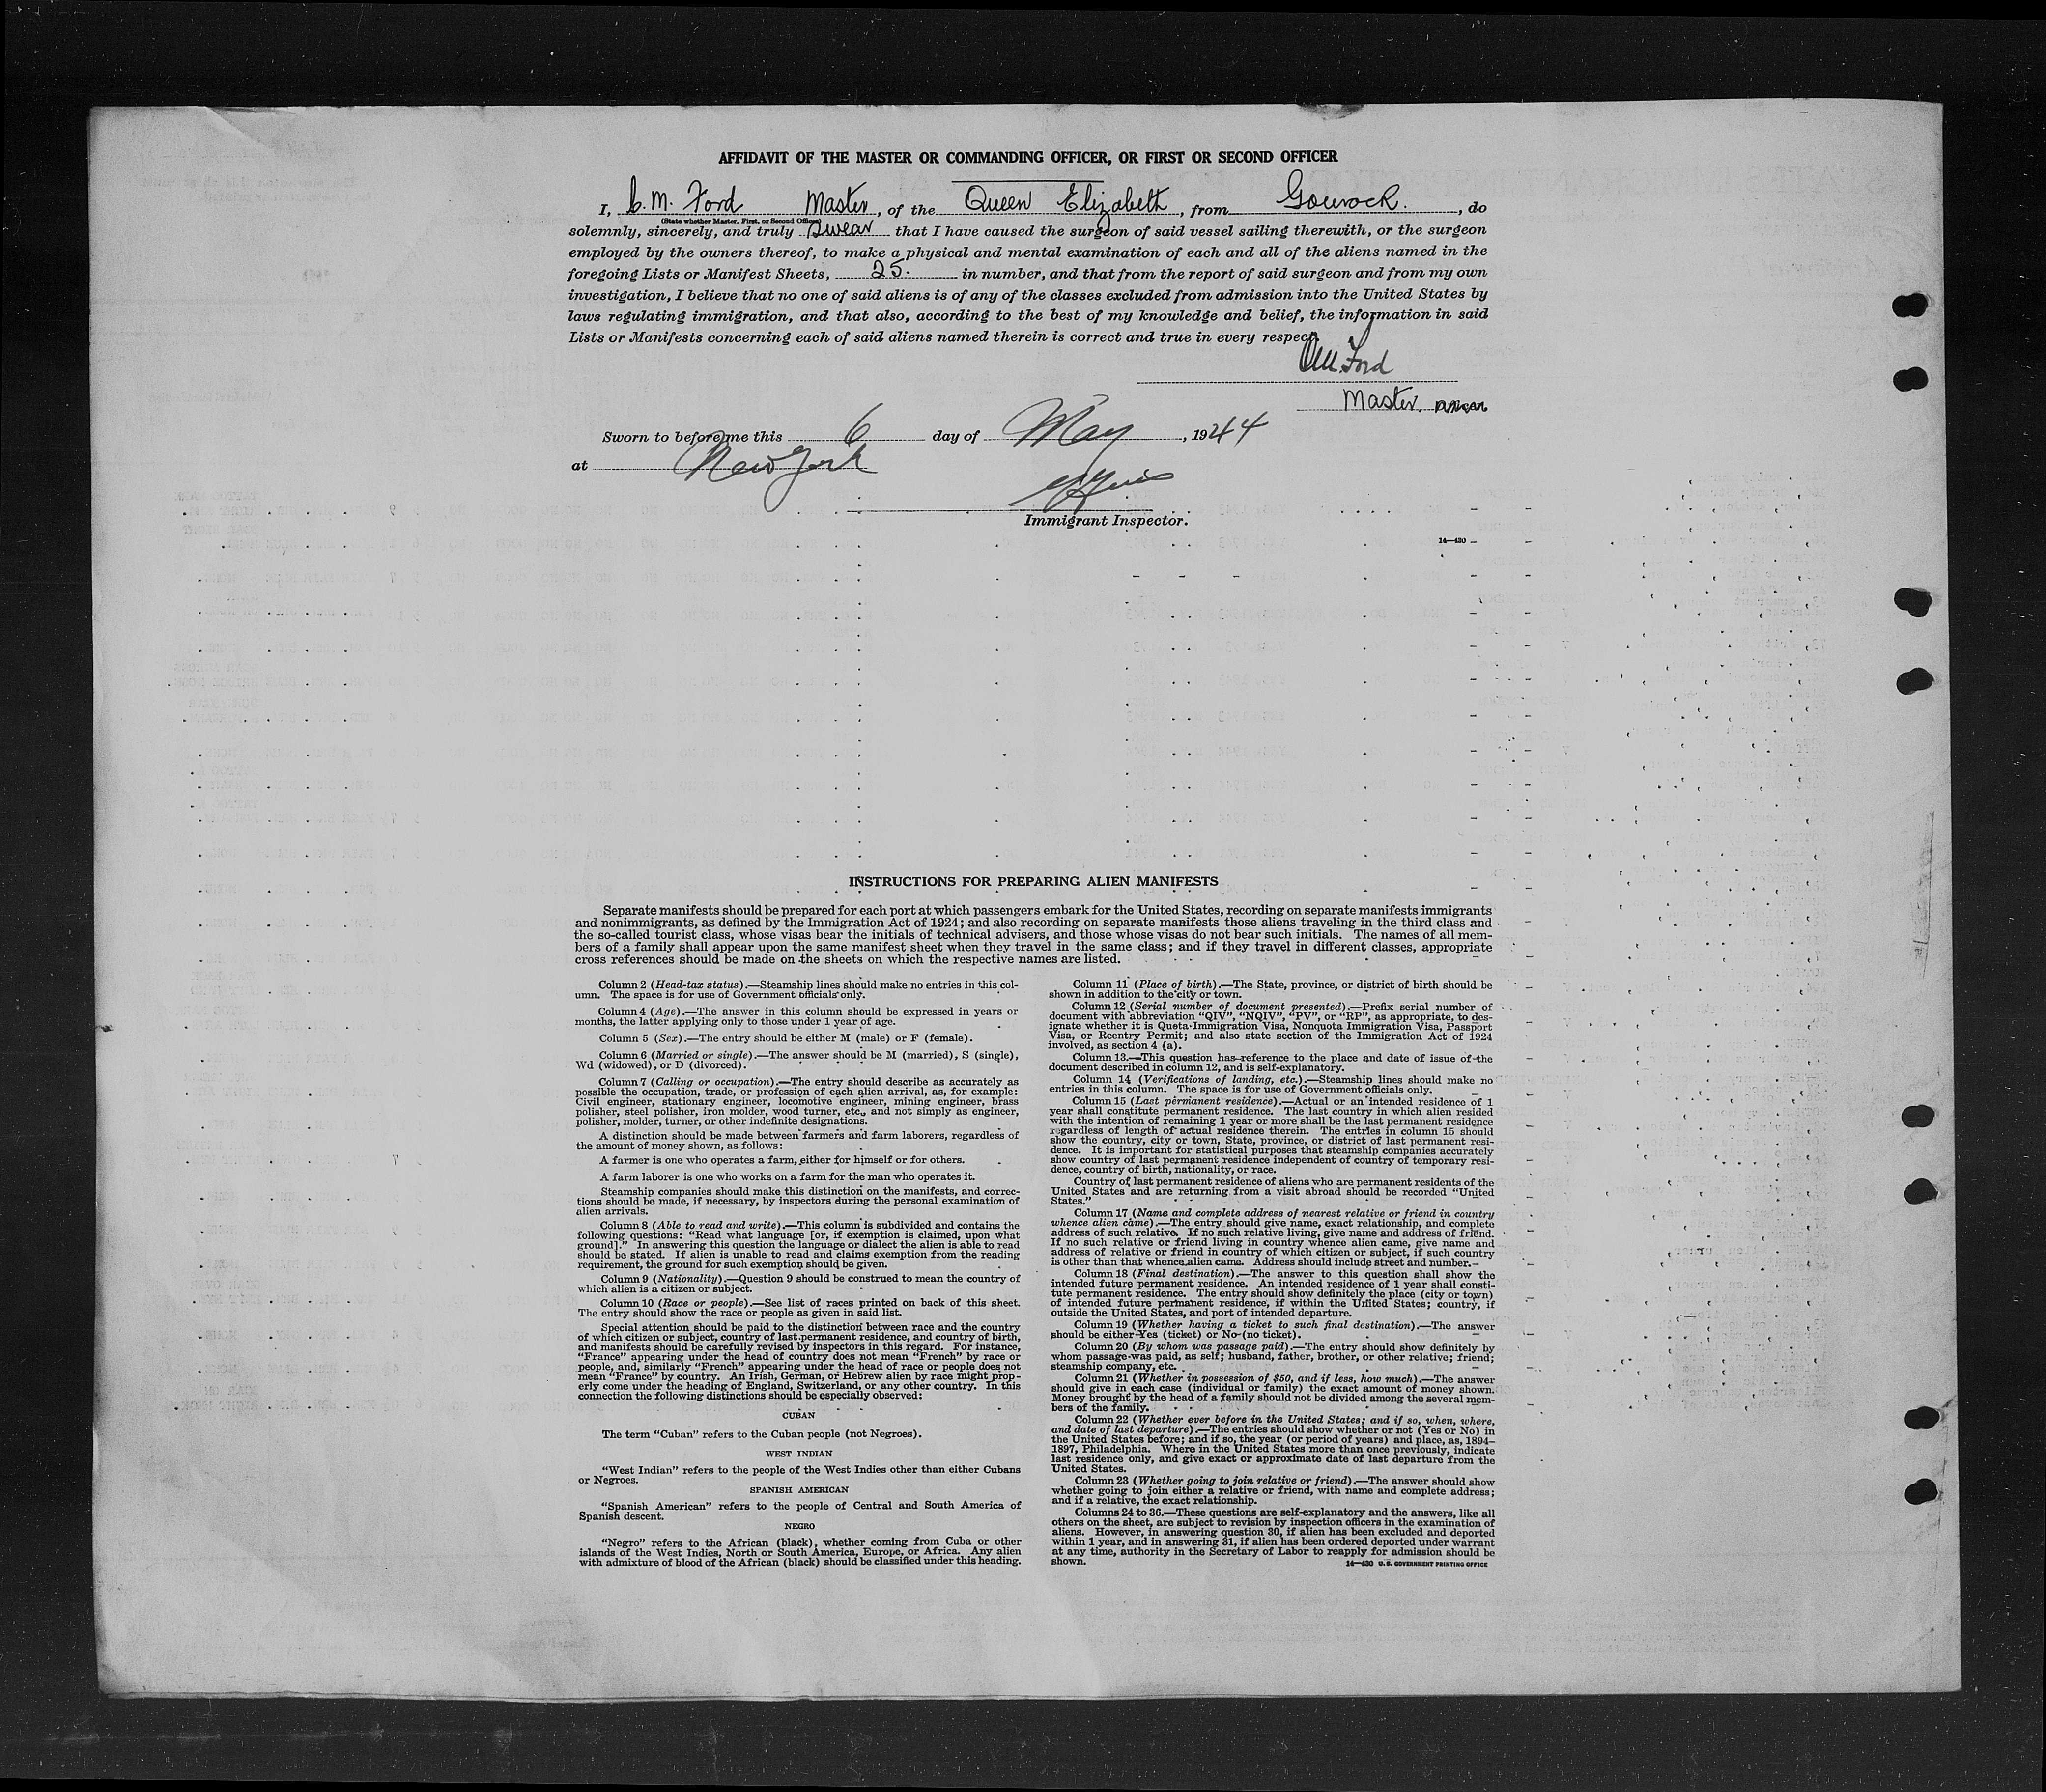 AFFIDAVIT OF THE MASTER OR COMMANDING OFFICER, OR FIRST OR SECOND OFFICER
I, C. M. Ford Master, of the Queen Elizabeth, from Gourock., do
(State whether Master, First, or Second Officer)
solemnly, sincerely, and truly swear that I have caused the surgeon of said vessel sailing therewith, or the surgeon
employed by the owners thereof, to make a physical and mental examination of each and all of the aliens named in the
foregoing Lists or Manifest Sheets, 25. in number, and that from the report of said surgeon and from my own
investigation, I believe that no one of said aliens is of any of the classes excluded from admission into the United States by
laws regulating immigration, and that also, according to the best of my knowledge and belief, the information in said
Lists or Manifests concerning each of said aliens named therein is correct and true in every respect.
CM. Ford
Master
Sworn to before me this 6 day of May, 1944
at New York
Immigrant Inspector.
14—430
INSTRUCTIONS FOR PREPARING ALIEN MANIFESTS
Separate manifests should be prepared for each port at which passengers embark for the United States, recording on separate manifests immigrants
and nonimmigrants, as defined by the Immigration Act of 1924; and also recording on separate manifests those aliens traveling in the third class and
the so-called tourist class, whose visas bear the initials of technical advisers, and those whose visas do not bear such initials. The names of all mem-
bers of a family shall appear upon the same manifest sheet when they travel in the same class; and if they travel in different classes, appropriate
cross references should be made on the sheets on which the respective names are listed.
Column 2 (Head-tax status).—Steamship lines should make no entries in this col-
umn. The space is for use of Government officials only.
Column 4 (Age).—The answer in this column should be expressed in years or
months, the latter applying only to those under 1 year of age.
Column 5 (Sex).—The entry should be either M (male) or F (female).
Column 6 (Married or single).—The answer should be M (married), S (single),
Wd (widowed), or D (divorced).
Column 7 (Calling or occupation).—The entry should describe as accurately as
possible the occupation, trade, or profession of each alien arrival, as, for example:
Civil engineer, stationary engineer, locomotive engineer, mining engineer, brass
polisher, steel polisher, iron molder, wood turner, etc., and not simply as engineer,
polisher, molder, turner, or other indefinite designations.
A distinction should be made between farmers and farm laborers, regardless of
the amount of money shown, as follows:
A farmer is one who operates a farm, either for himself or for others.
A farm laborer is one who works on a farm for the man who operates it.
Steamship companies should make this distinction on the manifests, and correc-
tions should be made, if necessary, by inspectors during the personal examination of
alien arrivals.
Column 8 (Able to read and write).—This column is subdivided and contains the
following questions: "Read what language [or, if exemption is claimed, upon what
ground]." In answering this question the language or dialect the alien is able to read
should be stated. If alien is unable to read and claims exemption from the reading
requirement, the ground for such exemption should be given.
Column 9 (Nationality).—Question 9 should be construed to mean the country of
which alien is a citizen or subject.
Column 10 (Race or people).—See list of races printed on back of this sheet.
The entry should show the race or people as given in said list.
Special attention should be paid to the distinction between race and the country
of which citizen or subject, country of last permanent residence, and country of birth,
and manifests should be carefully revised by inspectors in this regard. For instance,
"France" appearing under the head of country does not mean "French" by race or
people, and, similarly "French" appearing under the head of race or people does not
mean "France" by country. An Irish, German, or Hebrew alien by race might prop-
erly come under the heading of England, Switzerland, or any other country. In this
connection the following distinctions should be especially observed:
CUBAN
The term "Cuban" refers to the Cuban people (not Negroes).
WEST INDIAN
"West Indian" refers to the people of the West Indies other than either Cubans
or Negroes.
SPANISH AMERICAN
"Spanish American" refers to the people of Central and South America of
Spanish descent.
NEGRO
"Negro" refers to the African (black), whether coming from Cuba or other
islands of the West Indies, North or South America, Europe, or Africa. Any alien
with admixture of blood of the African (black) should be classified under this heading.
Column 11 (Place of birth).—The State, province, or district of birth should be
shown in addition to the city or town.
Column 12 (Serial number of document presented).—Prefix serial number of
document with abbreviation "QIV", "NQIV", "PV", or "RP", as appropriate, to des-
ignate whether it is Quota-Immigration Visa, Nonquota Immigration Visa, Passport
Visa, or Reentry Permit; and also state section of the Immigration Act of 1924
involved, as section 4 (a).
Column 13.—This question has reference to the place and date of issue of the
document described in column 12, and is self-explanatory.
Column 14 (Verifications of landing, etc.).—Steamship lines should make no
entries in this column. The space is for use of Government officials only.
Column 15 (Last permanent residence).—Actual or an intended residence of 1
year shall constitute permanent residence. The last country in which alien resided
with the intention of remaining 1 year or more shall be the last permanent residence
regardless of length of actual residence therein. The entries in column 15 should
show the country, city or town, State, province, or district of last permanent resi-
dence. It is important for statistical purposes that steamship companies accurately
show country of last permanent residence independent of country of temporary resi-
dence, country of birth, nationality, or race.
Country of last permanent residence of aliens who are permanent residents of the
United States and are returning from a visit abroad should be recorded "United
States."
Column 17 (Name and complete address of nearest relative or friend in country
whence alien came).—The entry should give name, exact relationship, and complete
address of such relative. If no such relative living, give name and address of friend.
If no such relative or friend living in country whence alien came, give name and
address of relative or friend in country of which citizen or subject, if such country
is other than that whence alien came. Address should include street and number.
Column 18 (Final destination).—The answer to this question shall show the
intended future permanent residence. An intended residence of 1 year shall consti-
tute permanent residence. The entry should show definitely the place (city or town)
of intended future permanent residence, if within the United States; country, if
outside the United States, and port of intended departure.
Column 19 (Whether having a ticket to such final destination).—The answer
should be either Yes (ticket) or No (no ticket).
Column 20 (By whom was passage paid).—The entry should show definitely by
whom passage was paid, as self; husband, father, brother, or other relative; friend;
steamship company, etc.
Column 21 (Whether in possession of $50, and if less, how much).—The answer
should give in each case (individual or family) the exact amount of money shown.
Money brought by the head of a family should not be divided among the several mem-
bers of the family.
Column 22 (Whether ever before in the United States; and if so, when, where,
and date of last departure).—The entries should show whether or not (Yes or No) in
the United States before; and if so, the year (or period of years) and place, as, 1894–
1897, Philadelphia. Where in the United States more than once previously, indicate
last residence only, and give exact or approximate date of last departure from the
United States.
Column 23 (Whether going to join relative or friend).—The answer should show
whether going to join either a relative or friend, with name and complete address;
and if a relative, the exact relationship.
Columns 24 to 36.—These questions are self-explanatory and the answers, like all
others on the sheet, are subject to revision by inspection officers in the examination of
aliens. However, in answering question 30, if alien has been excluded and deported
within 1 year, and in answering 31, if alien has been ordered deported under warrant
at any time, authority in the Secretary of Labor to reapply for admission should be
shown.
14—430 U. S. GOVERNMENT PRINTING OFFICE